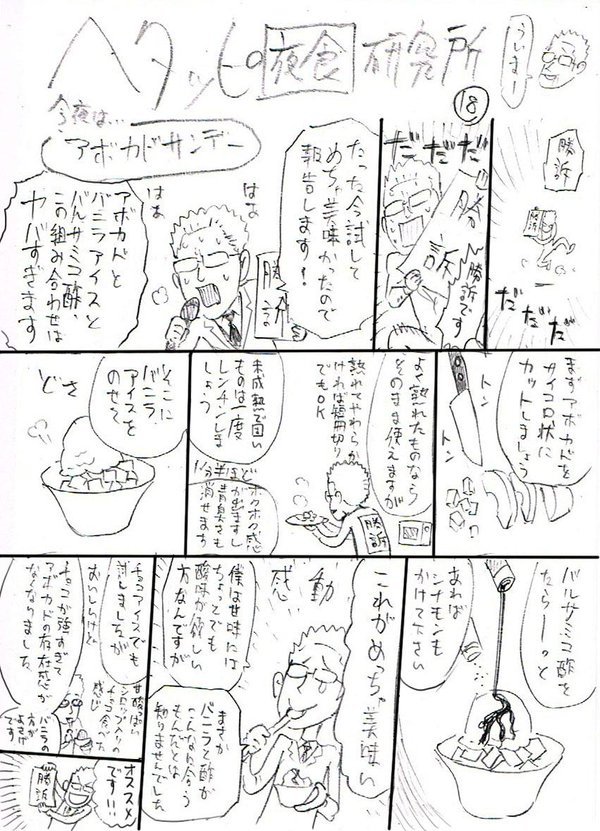 ヘタッピの夜食研究所
うぃまー
18
今夜は…
アボカドサンデー
勝訴
勝訴
だだだ
だだだ
勝訴
勝訴です
たった今試して
めちゃ美味かったので
報告します!
勝訴
はぁ
はぁ
アボカドと
バニラアイスと
バルサミコ酢、
この組み合わせは
ヤバすぎます
まずアボカドを
サイコロ状に
カットしましょう
トン
トン
よく熟れたものなら
そのまま使えますが
熟れてやわらか
ければ短冊切り
でもOK
未成熟で固い
ものは一度
レンチンしま
しょう
1分半ほど
ホクホク感
が出ますし
青臭さも
消せます
勝訴
そこに
バニラ
アイスを
のせて
どさ
バルサミコ酢を
たらーっと
あれば
シナモンも
かけて下さい
これがめっちゃ美味い
感動
僕は甘味には
ちょっとでも
酸味が欲しい
方なんですが
まさか
バニラと酢が
こんなに合う
もんだとは
知りませんでした
チョコアイスでも
試しましたが
おいしいけど
チョコが強すぎて
アボカドの存在感が
なくなりました
甘酸っぱい
シロップ入りの
チョコ食べた
感じ
バニラの
方が
よさげ
です
オススメ
です!!
勝訴